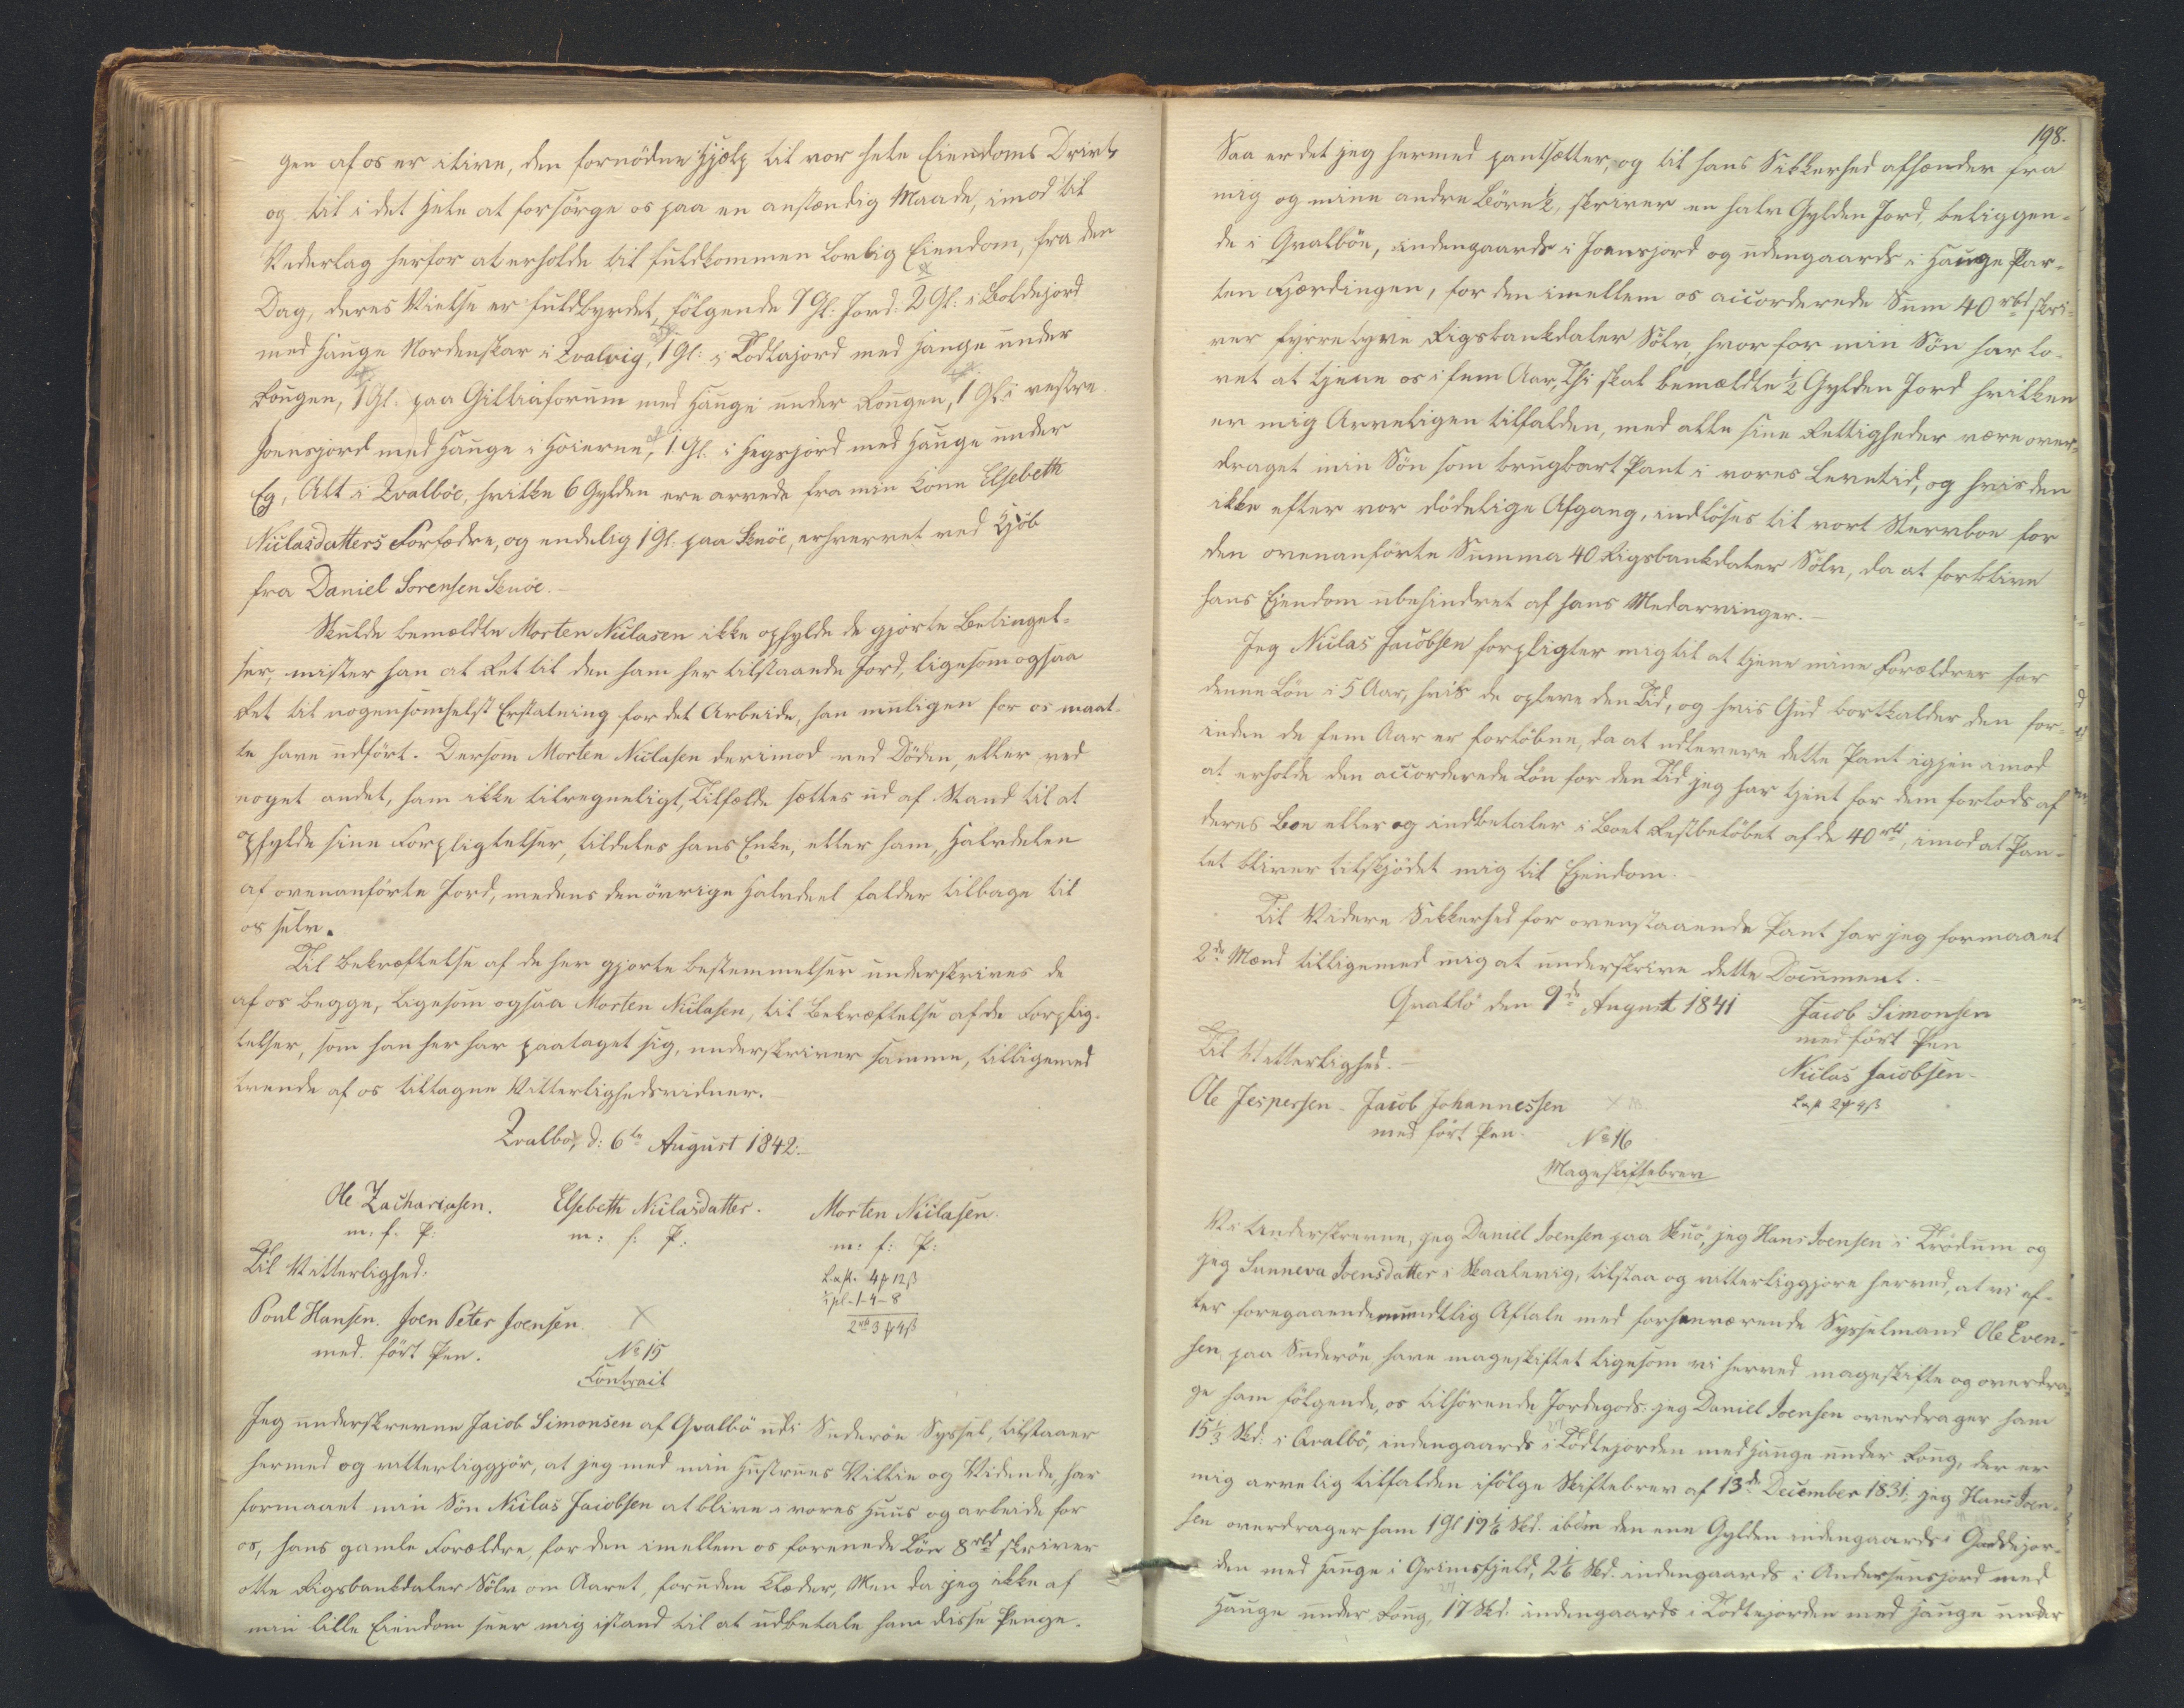 gen af os er ilive, den fornödne Hjælp til vor hele Eiendoms Drivt,
og til i det Hele at forsörge os paa en anstændig Maade, imod til
Vederlag herfor at erholde til fuldkommen lovlig Eiendom, fra den
Dag, deres Vielse er fuldbyrdet, fölgende 7 Gl: Jord: 2 Gl: i Boldejord
med Hauge Nordenskar i Zvalvig, 1 Gl: i Todtajord med Hauge under
Rougen, 1 Gl: paa Gilliaforum med Hauge under Rougen, 1 Gl: i vestre
Joensjord med Hauge i Hoierne, 1 Gl: i Hegsjord med Hauge under
Eg, Alt i Zvalböe, hvilke 6 Gylden ere arvede fra min Kone Elsebeth
Niclasdatters Forfædre, og endelig 1 Gl: paa Skuöe, erhvervet ved Kjöb
fra Daniel Sorensen Skuöe.
Skulde bemældte Morten Niclasen ikke opfylde de gjorte Betingel-
ser, mister han al Ret til den ham her tilstaaede Jord, ligesom ogsaa
Ret til nogensomhelst Erstatning for det Arbeide, han muligen for os maat-
te have udfört. Dersom Morten Niclasen derimod ved Döden, eller ved
noget andet, ham ikke tilregneligt, Tilfælde sættes ud af Stand til at
opfylde sine Forpligtelser, tildeles hans Enke, eller ham, Halvdelen
af ovenanförte Jord, medens den övrige Halvdeel falder tilbage til
os selv.
Til Bekræftelse af de her gjorte Bestemmelser underskrives de
af os Begge, ligesom ogsaa Morten Niclasen, til Bekræftelse af de Forplig-
telser, som han her har paataget sig, underskriver samme, tilligemed
tvende af os tiltagne Vitterlighedsvidner.
Zvalbö, d: 6te August 1842.
Ole Zachariasen. Elsebeth Niclasdatter. Morten Niclasen.
m: f: P: m: f: P: m: f: P:
Til Vitterlighed:
Poul Hansen. Joen Peter Joensen. X
med fört Pen.
4 12 ß
1-4-8
2 3 4 ß
No 15
Contract
Jeg underskrevne Jacob Simonsen af Qvalbö udi Suderöe Syssel, tilstaaer
hermed og vitterliggjör, at jeg med min Hustrues Villie og Vidende, har
formaaet min Sön Niclas Jacobsen at blive i vores Huus og arbeide for
os, hans gamle Forældre, for den imellem os forenede Lön 8 rbd skriver
otte Rigsbankdaler Sölv om Aaret, foruden Klæder, Men da jeg ikke af
min lille Eiendom seer mig istand til at udbetale ham disse Penge.
198.
Saa er det jeg hermed pantsætter, og til hans Sikkerhed afhænder fra
mig og mine andre Börn ½, skriver en halv Gylden Jord, beliggen-
de i Qvalböe, indengaards i Joensjord og udengaards i Hauge Par-
ten Fjærdingen, for den imellem os accorderede Sum 40 rbd skri-
ver fyrretyve Rigsbankdaler Sölv, hvorfor min Sön har lo-
vet at tjene os i fem Aar, Thi skal bemældte ½ Gylden Jord hvilken
er mig Arveligen tilfalden, med alle sine Rettigheder være over-
draget min Sön som brugbart Pant i vores Levetid, og hvis den
ikke efter vor dödelige Afgang, indlöses til vort Stervboe for
den ovenanförte Summa 40 Rigsbankdaler Sölv, da at forblive
hans Ejendom ubehindret af hans Medarvinger.
Jeg Niclas Jacobsen forpligter mig til at tjene mine Forældrer for
denne Lön i 5 Aar, hvis de opleve den Tid, og hvis Gud bortkalder dem for-
inden de fem Aar er forlöbne, da at udlevere dette Pant igjen imod
at erholde den accorderede Lön for den Tid jeg har tjent for dem forlods af
deres Boe eller og indbetaler i Boet Restbelöbet af de 40 rbd, imod at Pan-
tet bliver tilskjödet mig til Ejendom.
Til Videre Sikkerhed for ovenstaaende Pant har jeg formaaet
2de Mænd tilligemed mig at underskrive dette Document.
Qvalbö den 9de August 1841
Jacob Simonsen
med fört Pen
Niclas Jacobsen
Til Vitterlighed.
Ole Jespersen Jacob Johannessen X
med fört Pen
2 4 ß
No 16
Mageskiftebrev
Vi Underskrevne, jeg Daniel Joensen paa Skuö, jeg Hans Joensen i Trödum og
jeg Sunneva Joensdatter i Skaalevig, tilstaa og vitterliggjöre herved, at vi ef-
ter foregaaende mundtlig Aftale med forhenværende Sysselmand Ole Even-
sen paa Suderöe have mageskiftet ligesom vi herved mageskifte og overdra-
ge ham fölgende, os tilhörende Jordegods: jeg Daniel Joensen overdrager ham
15⅓ Skd: i Qvalbö, indengaards i Todtejorden med Hauge under Roug, der er
mig arvelig tilfalden ifölge Skiftebrev af 13de December 1831; jeg Hans Joen-
sen overdrager ham 1 Gl 19⅙ Skd. ibdm den ene Gylden indengaards i Gaddejor-
den med Hauge i Grimsfjeld, 2⅙ Skd. indengaards i Andersensjord med
Hauge under Roug, 17 Skd: indengaards i Todtejorden med Hauge under